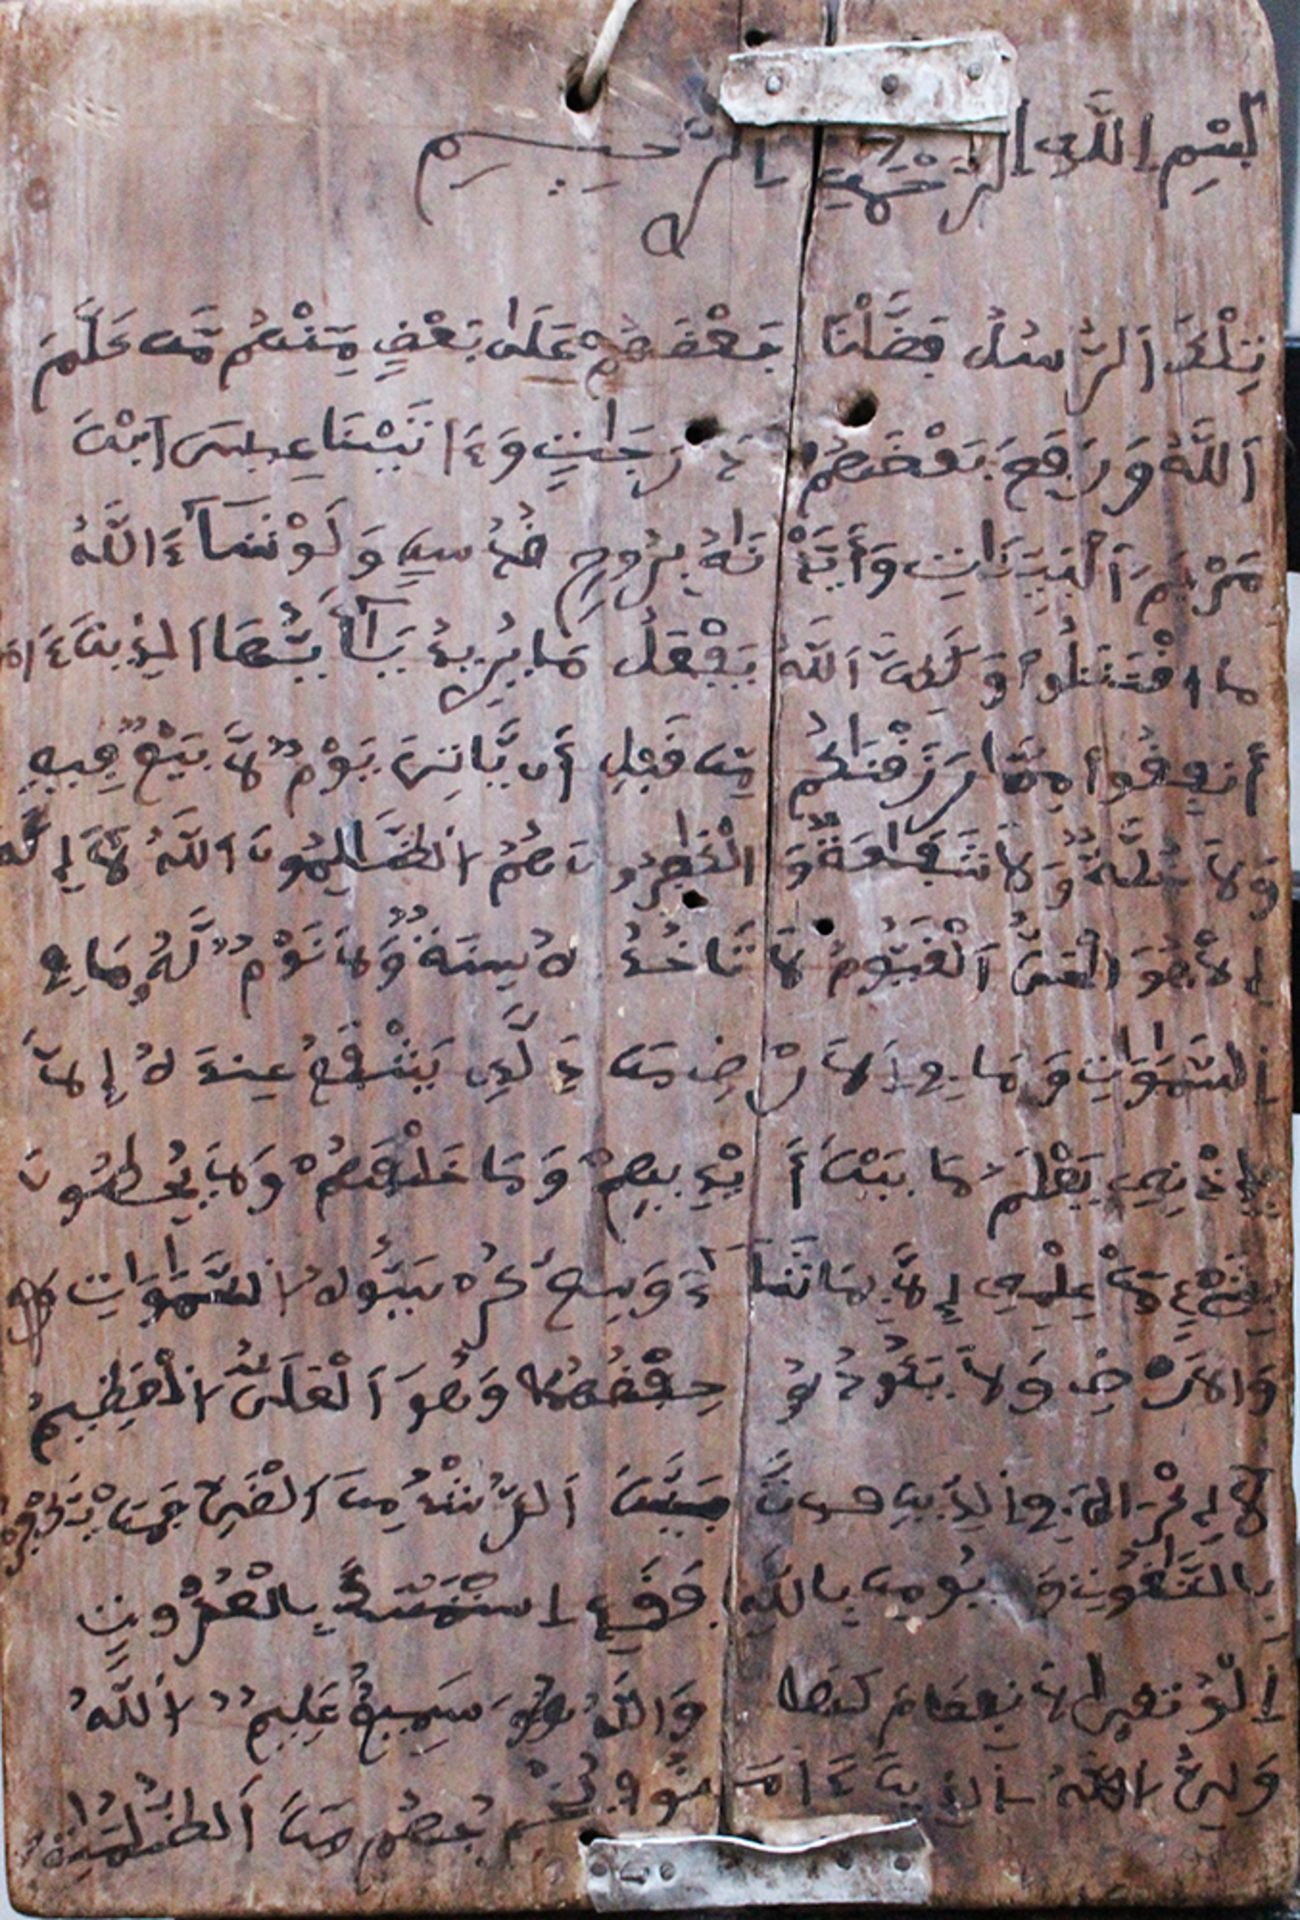 بِسْمِ اِللَّهِ اِلرَّحْمَٰنِ اِلرَّحِيمِ
تِلْكَ اَلرُّسُلُ فَضَّلْنَا بَعْضَهُمْ عَلَىٰ بَعْضٍ مِّنْهُم مَّن كَلَّمَ
اَللَّهُ وَرَفَعَ بَعْضَهُمْ دَرَجَٰتٍ وَءَاتَيْنَا عِيسَى اَبْنَ
مَرْيَمَ اَلْبَيِّنَٰتِ وَأَيَّدْنَٰهُ بِرُوحِ اِلْقُدُسِ وَلَوْ شَآءَ اَللَّهُ
مَا اقْتَتَلُواْ وَلَٰكِنَّ اَللَّهَ يَفْعَلُ مَا يُرِيدُ يَٰٓأَيُّهَا اَلذِينَ ءَامَ
أَنفِقُواْ مِمَّا رَزَقْنَٰكُم مِّن قَبْلِ أَن يَّاتِىَ يَوْمٌ لاَّ بَيْعٌ فِيهِ
وَلاَ خُلَّةٌ وَلاَ شَفَٰعَةٌ وَالْكَٰفِرُونَ هُمُ اُلظَّٰلِمُونَ اَللَّهُ لآَ إِلَٰهَ
إِلاَّ هُوَ اَلْحَىُّ اَلْقَيُّومُ لاَ تَاخُذُهُ سِنَةٌ وَلاَ نَوْمٌ لَّهُ مَا فِي
اِلسَّمَٰوَٰتِ وَمَا فِي اِلاَرْضِ مَن ذَا اَلَّذِى يَشْفَعُ عِندَهُ إِلاَّ
بِإِذْنِهِ يَعْلَمُ مَا بَيْنَ أَيْدِيهِمْ وَمَا خَلْفَهُمْ وَلاَ يُحِيطُونَ
بِشَىْءٍ مِّنْ عِلْمِهِ إِلاَّ بِمَا شَآءَ وَسِعَ كُرْسِيُّهُ اُلسَّمَٰوَٰتِ
وَالاَرْضَ وَلاَ يَئُودُهُ حِفْظُهُمَا وَهُوَ اَلْعَلِىُّ اُلْعَظِيمُ
لآَ إِكْرَاهَ فِي اِلدِّينِ قَد تَّبَيَّنَ اَلرُّشْدُ مِنَ اَلْغَىِّ فَمَنْ يَّكْفُرْ
بِالطَّٰغُوتِ وَيُومِن بِاللَّهِ فَقَدِ اِسْتَمْسَكَ بِالْعُرْوَةِ
اِلْوُثْقَىٰ لاَ اَنفِصَامَ لَهَا وَاللَّهُ سَمِيعٌ عَلِيمٌ اُللَّهُ
وَلِىُّ اُلذِينَ ءَامَنُواْ يُخْرِجُهُم مِّنَ اَلظُّلُمَٰتِ